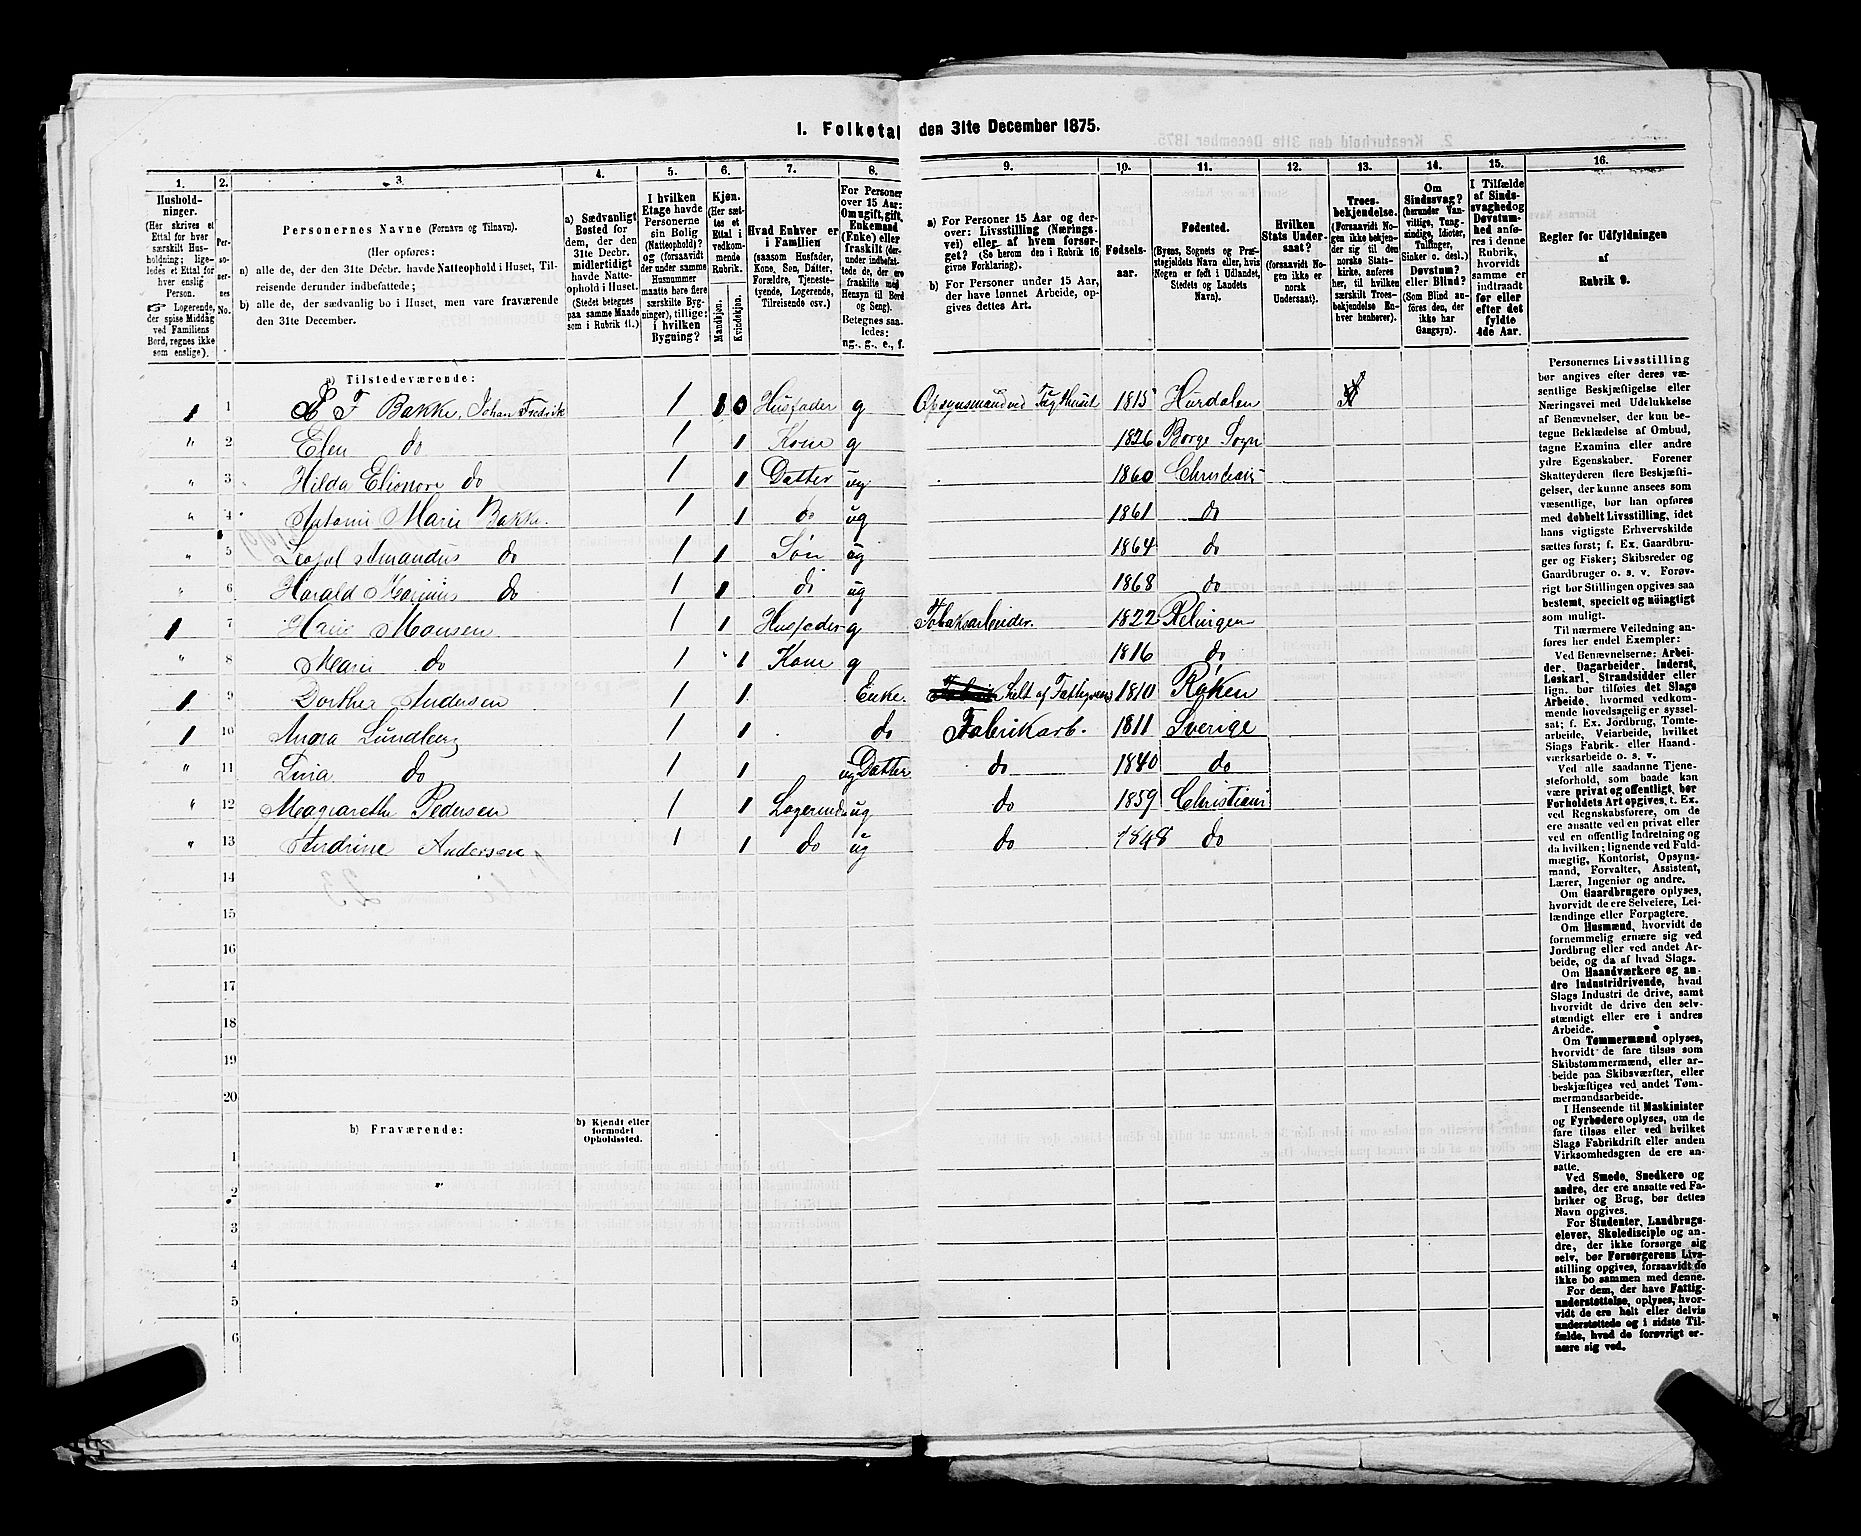 1. Folketæ den 31te December 1875.
1. 2. 3. 4. 5. 6. 7. 8. 9. 10. 11. 12. 13. 14. 15. 16.
Hushold-
ninger.
(Her skrives et
Ettal for hver
særskilt Hus-
holdning; lige-
ledes et Ettal for
hver enslig
Person.
☞ Logerende,
der spise Middag
ved Familiens
Bord, regnes ikke
som enslige).
Per-
so-
ner-
nes
No.
Personernes Navne (Fornavn og Tilnavn).
(Her opføres:
a) alle de, der den 31te Decbr. havde Natteophold i Huset, Til-
reisende derunder indbefattede;
b) alle de, der sædvanlig bo i Huset, men vare fraværende
den 31te December.
a) Sædvanligt
Bosted for
dem, der den
31te Decbr.
midlertidigt
havde Natte-
ophold i Huset.
(Stedet betegnes
paa samme Maade
som i Rubrik 11.)
I hvilken
Etage havde
Personerne
sin Bolig
(Natteophold)?
og (forsaavidt
der under samme
Husnummer
maatte høre flere
særskilte Byg-
ninger), tillige:
i hvilken
Bygning?
Kjøn.
(Her sæt-
tes et
Ettal i
vedkom-
mende
Rubrik.
Mandkjøn.
Kvindekjøn.
Hvad Enhver er
i Familien
(saasom Husfader,
Kone, Søn, Datter,
Forældre, Tjeneste-
tyende, Logerende,
Tilreisende osv.)
For Personer
over 15 Aar:
Om ugift, gift,
Enkemand
(Enke) eller
fraskilt (der-
under indbefat-
tede de, der ere
fraskilte med
Hensyn til Bord
og Seng).
Betegnes saa-
ledes:
ug., g., e., f.
a) For Personer 15 Aar og der-
over: Livsstilling (Nærings-
vei) eller af hvem forsør-
get? (Se herom den i Rubrik 16
givne Forklaring).
b) For Personer under 15 Aar,
der have lønnet Arbeide, op-
gives dettes Art.
Fødsels-
aar.
Fødested.
(Byens, Sognets og Præ-
stegjeldets Navn eller, hvis
Nogen er født i Udlandet,
Stedets og Landets
Navn).
Hvilken
Stats Under-
saat?
(forsaavidt No-
gen ikke er
norsk
Undersaat).
Troes-
bekjendelse.
(Forsaavidt No-
gen ikke bekjen-
der sig til den
norske Stats-
kirke, anføres
her, til hvilken
særskilt Troes-
bekjendelse En-
hver henhører).
Om
Sindssvag?
(herunder Van-
vittige, Tung-
sindige, Idioter,
Tullinger,
Sinker o. desl.)
Døvstum?
eller Blind?
(Som Blind an-
føres den, der
ikke har
Gangsyn).
I Tilfælde
af Sinds-
svaghed og
Døvstum-
hed anfø-
res i denne
Rubrik,
hvorvidt
samme er
indtraadt
før eller
efter det
fyldte
4de Aar.
Regler for Udfyldningen
af
Rubrik 9.
a) Tilstedeværende:
1 1 F Bakke, Johan Fredrik 1 1 0 Husfader g Opsynsmand ved 1815 Hurdalen
" 2 Elen do 1 1 Kone g 1826 Borge Sogn
" 3 Hilda Elionore do 1 1 Datter ug 1860 Christiani
" 4 Antoni Marie Bakke. 1 1 do ug 1861 do
" 5 Leopol Amandus do 1 1 Søn ug 1864 do
" 6 Harald Marius do 1 1 do ug 1868 do
1 7 Hans Monsen 1 1 Husfader g Tobaksarbeider. 1822 Relingen
" 8 Marie do 1 1 Kone g 1816 do
1 9 Dorthea Andersen 1 1 Enke. helt af Fattigvæs 1810 Røken
1 10 Anna Lundberg 1 1 do Fabrikarb. 1811 Sverige
" 11 Lina do 1 1 ug Datter do 1840 do
" 12 Magrarethe Pedersen 1 1 Logerende ug do 1859 Christiani
" 13 Andrine Andersen 1 1 do ug do 1848 do
14
15
16
17
18
19
20
b) Fraværende:
b) Kjendt eller
formodet
Opholdssted.
1
2
3
4
5
6
Personernes Livsstilling
bør angives efter deres væ-
sentlige Beskjæftigelse eller
Næringsvei med Udelukkelse
af Benævnelser, der kun be-
tegne Beklædelse af Ombud,
tagne Examina eller andre
ydre Egenskaber. Forener
Skatteyderen flere Beskjæfti-
gelser, der kunne ansees som
væsentlige, bør han opføres
med dobbelt Livsstilling, idet
hans vigtigste Erhvervskilde
sættes først; f. Ex. Gaardbru-
ger og Fisker; Skibsreder og
Gaardbruger o. s. v. Forøv-
rigt bør Stillingen opgives saa
bestemt, specielt og nøiagtigt
som muligt.
Til nærmere Veiledning an-
føres her endel Exempler:
Ved Benævnelserne: Arbei-
der, Dagarbeider, Inderst,
Løskarl, Strandsidder eller
lign. bør tilføies det Slags
Arbeide, hvormed vedkom-
mende hovedsagelig er syssel-
sat; f. Ex. Jordbrug, Tomte-
arbeide, Veiarbeide, hvilket
Slags Fabrik- eller Haand-
værksarbeide o. s. v.
Ved alle saadanne Tjene-
steforhold, som baade kan
være privat og offentligt, bør
Forholdets Art opgives, t. Ex.
ved Regnskabsførere, om de
ere ansatte ved en privat eller
ved en offentlig Indretning og
da hvilken; lignende ved Fuld-
mægtig, Kontorist, Opsyns-
mand, Forvalter, Assistent,
Lærer, Ingeniør og andre.
Om Gaardbrugere oplyses,
hvorvidt de ere Selveiere, Lei-
lændinge eller Forpagtere.
Om Husmænd, hvorvidt de
fornemmelig ernære sig ved
Jordbrug eller ved andet Ar-
beide, og da af hvad Slags.
Om Haandværkere og an-
dre Industridrivende, hvad
Slags Industri de drive, samt
hvorvidt de drive den selv-
stændigt eller ere i andres
Arbeide.
Om Tømmermænd oplyses,
hvorvidt de fare tilsøs som
Skibstømmermænd, eller ar-
beide paa Skibsværfter, eller
beskjæftiges ved andet Tøm-
mermandsarbeide.
I Henseende til Maskinister
og Fyrbødere oplyses, om de
fare tilsøs eller ved hvilket
Slags Fabrikdrift eller anden
Virksomhedsgren de ere an-
satte.
Ved Smede, Snedkere og
andre, der ere ansatte ved Fa-
briker og Brug, bør dettes
Navn opgives.
For Studenter, Landbrugs-
elever, Skoledisciple og an-
dre, der ikke forsørge sig
selv, bør Forsørgerens Livs-
stilling opgives, forsaavidt de
ikke bo sammen med denne.
For dem, der have Fattig-
understøttelse, oplyses, hvor-
vidt de ere helt eller delvis
understøttede og i sidste Til-
fælde, hvad de forøvrigt er-
nære sig ved.